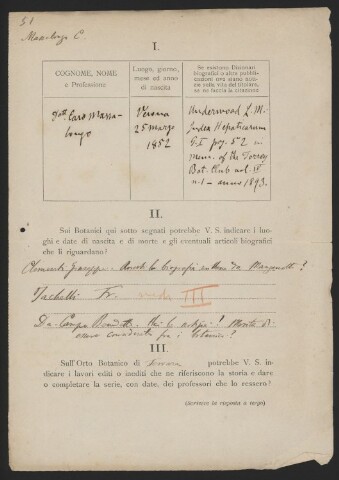 51
Massalongo C.
I.
COGNOME, NOME
e Professione
Luogo, giorno,
mese ed anno
di nascita
Se esistono Dizionari
biografici o altre pubbli-
cazioni ove siano notizie
sulla vita del titolare,
se ne faccia la citazione
Dott. Caro Massa-
longo
Verona
25 marzo
1852
Underwood L. M.
Index Hepaticarum
P. I pag. 52 in
Mem. of the Torrey
Bot. Club vol. IV
n. 1 – anno 1893.
II.
Sui Botanici qui sotto segnati potrebbe V. S. indicare i luo-
ghi e date di nascita e di morte e gli eventuali articoli biografici
che li riguardano?
Clementi Giuseppe.
?
Fr. vedi III
Da Campo Benedetto.
III.
Sull'Orto Botanico di Verona potrebbe V. S. in-
dicare i lavori editi o inediti che ne riferiscono la storia e dare
o completare la serie, con date, dei professori che lo ressero?
(scrivere la risposta a tergo)